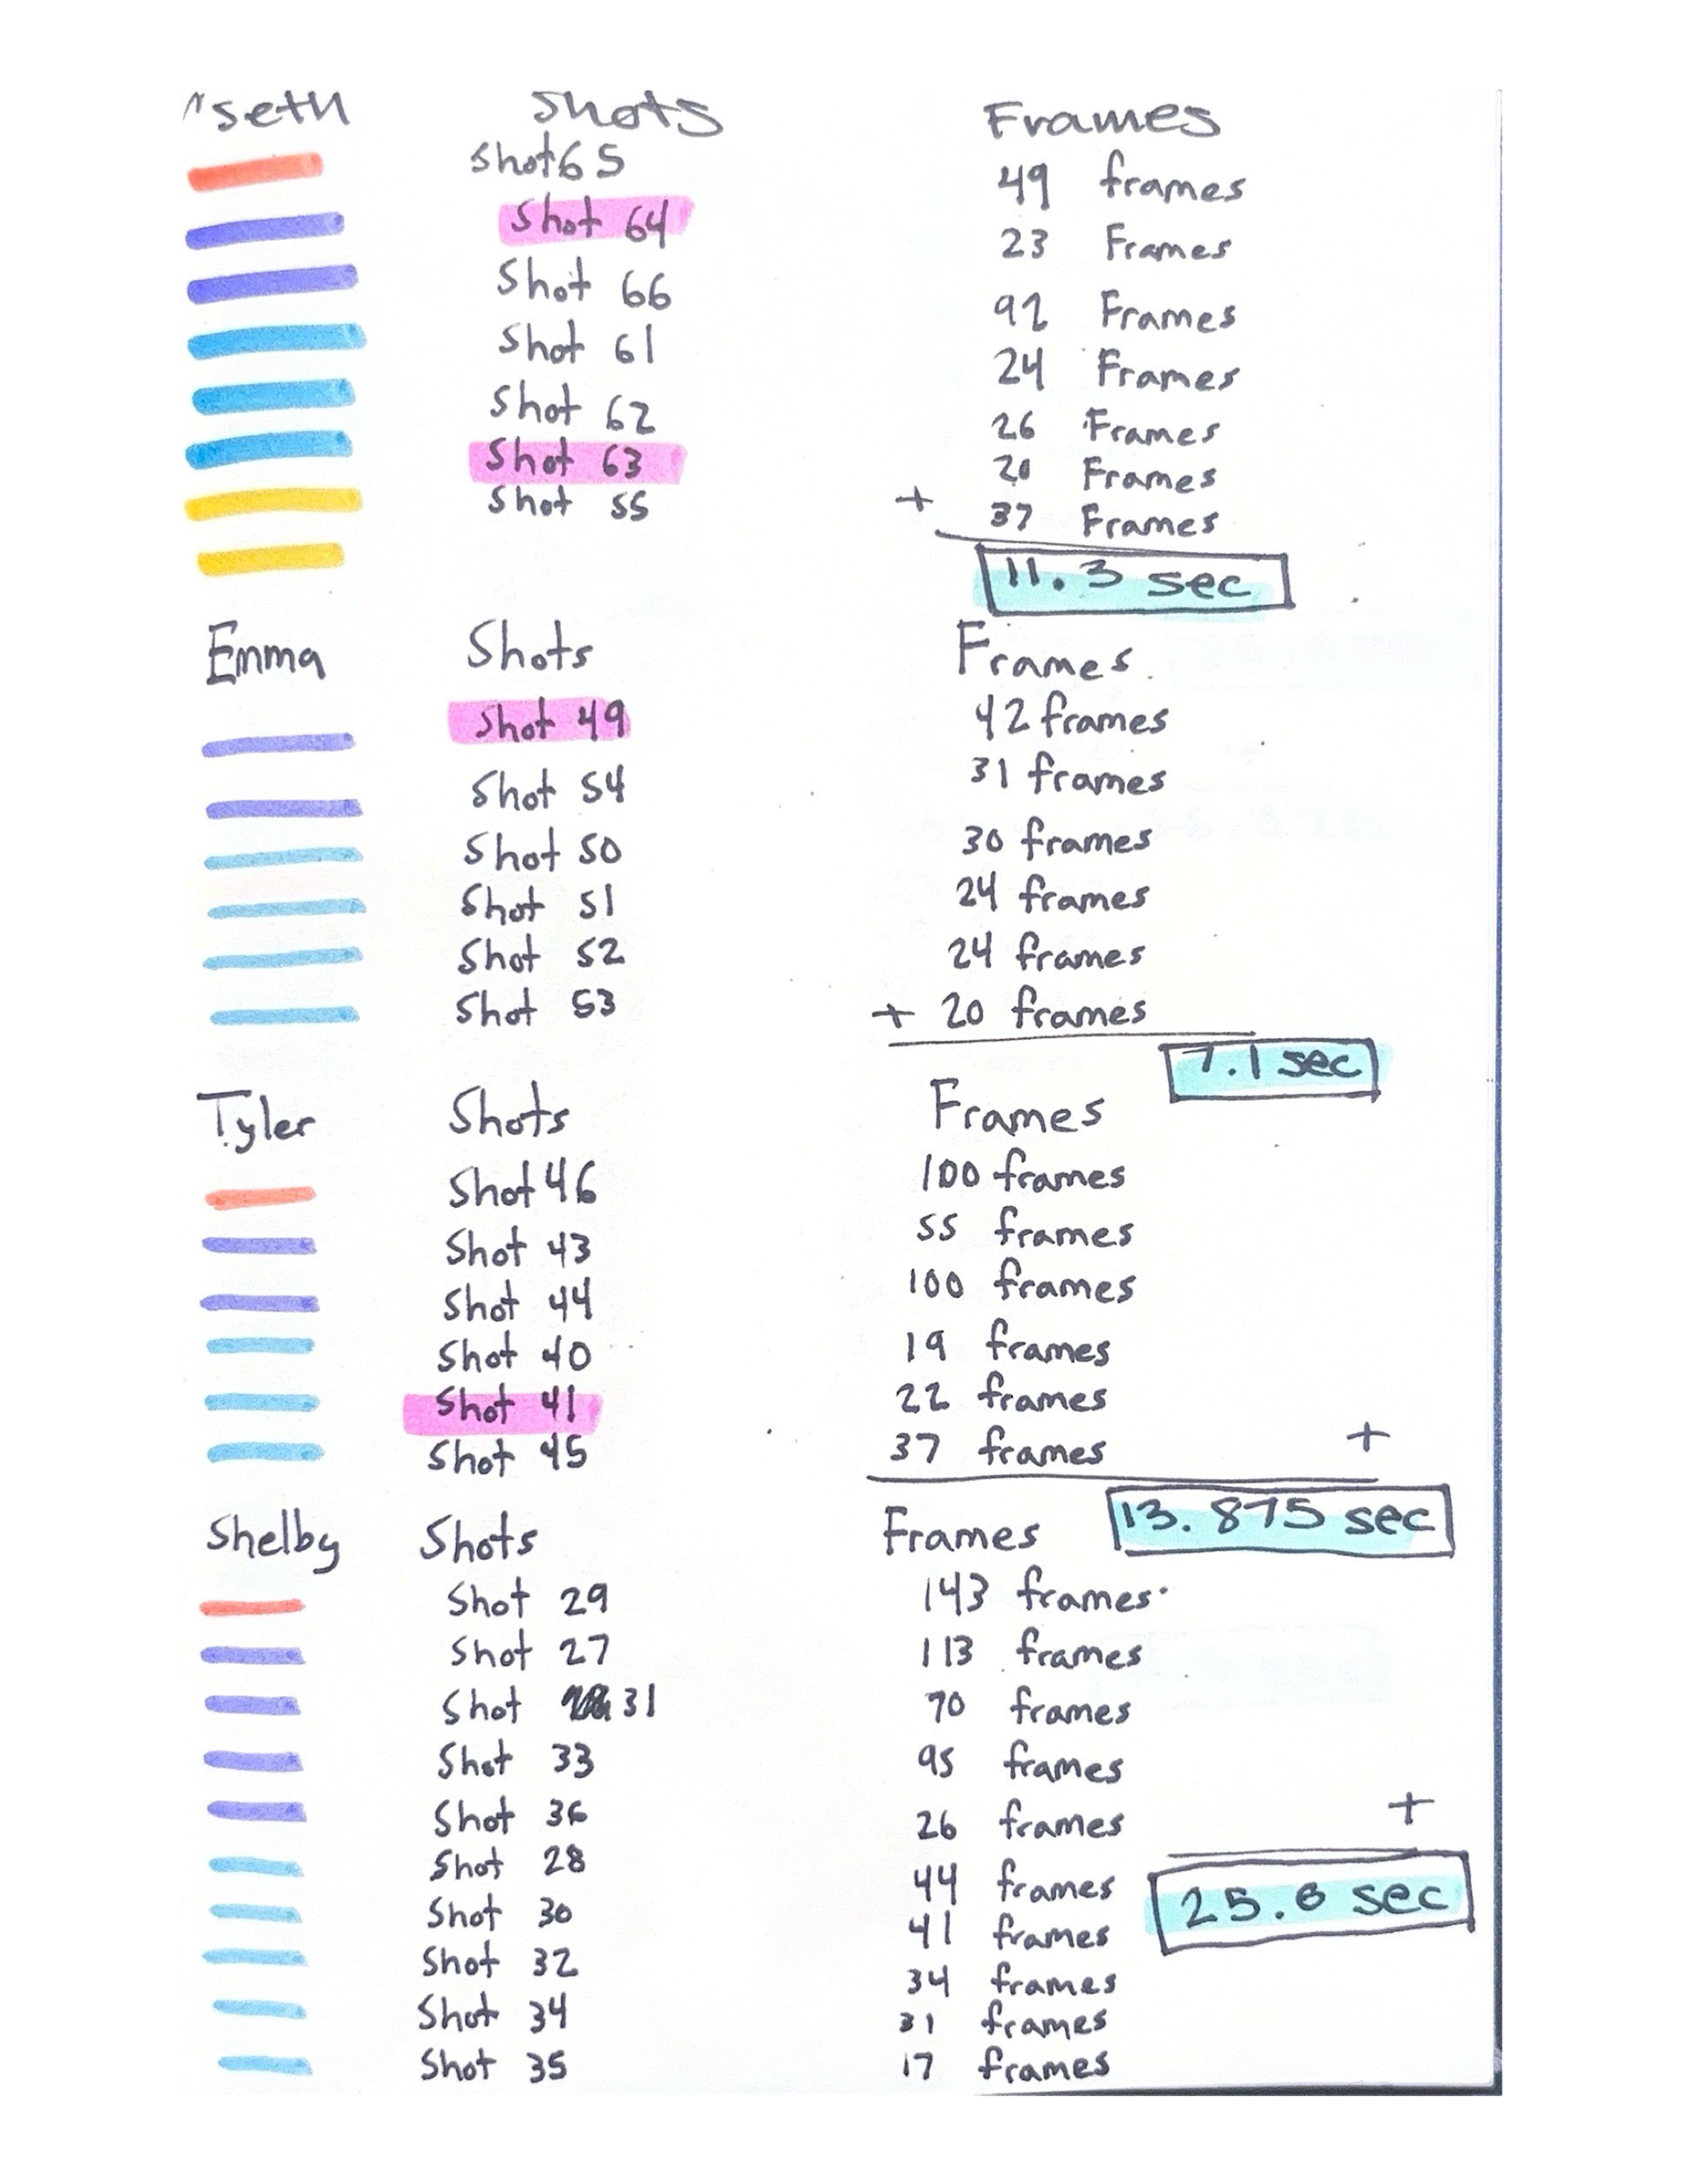 Seth Shots Frames
Shot 65 49 frames
Shot 64 23 Frames
Shot 66 92 Frames
Shot 61 24 Frames
Shot 62 26 Frames
Shot 63 20 Frames
Shot 55 + 37 Frames
11.3 sec
Emma Shots Frames
Shot 49 42 frames
Shot 54 31 frames
Shot 50 30 frames
Shot 51 24 frames
Shot 52 24 frames
Shot 53 + 20 frames
7.1 sec
Tyler Shots Frames
Shot 46 100 frames
Shot 43 55 frames
Shot 44 100 frames
Shot 40 19 frames
Shot 41 22 frames
Shot 45 37 frames +
13.875 sec
Shelby Shots Frames
Shot 29 143 frames
Shot 27 113 frames
Shot 31 70 frames
Shot 33 95 frames
Shot 36 26 frames +
Shot 28 44 frames
25.6 sec
Shot 30 41 frames
Shot 32 34 frames
Shot 34 31 frames
Shot 35 17 frames